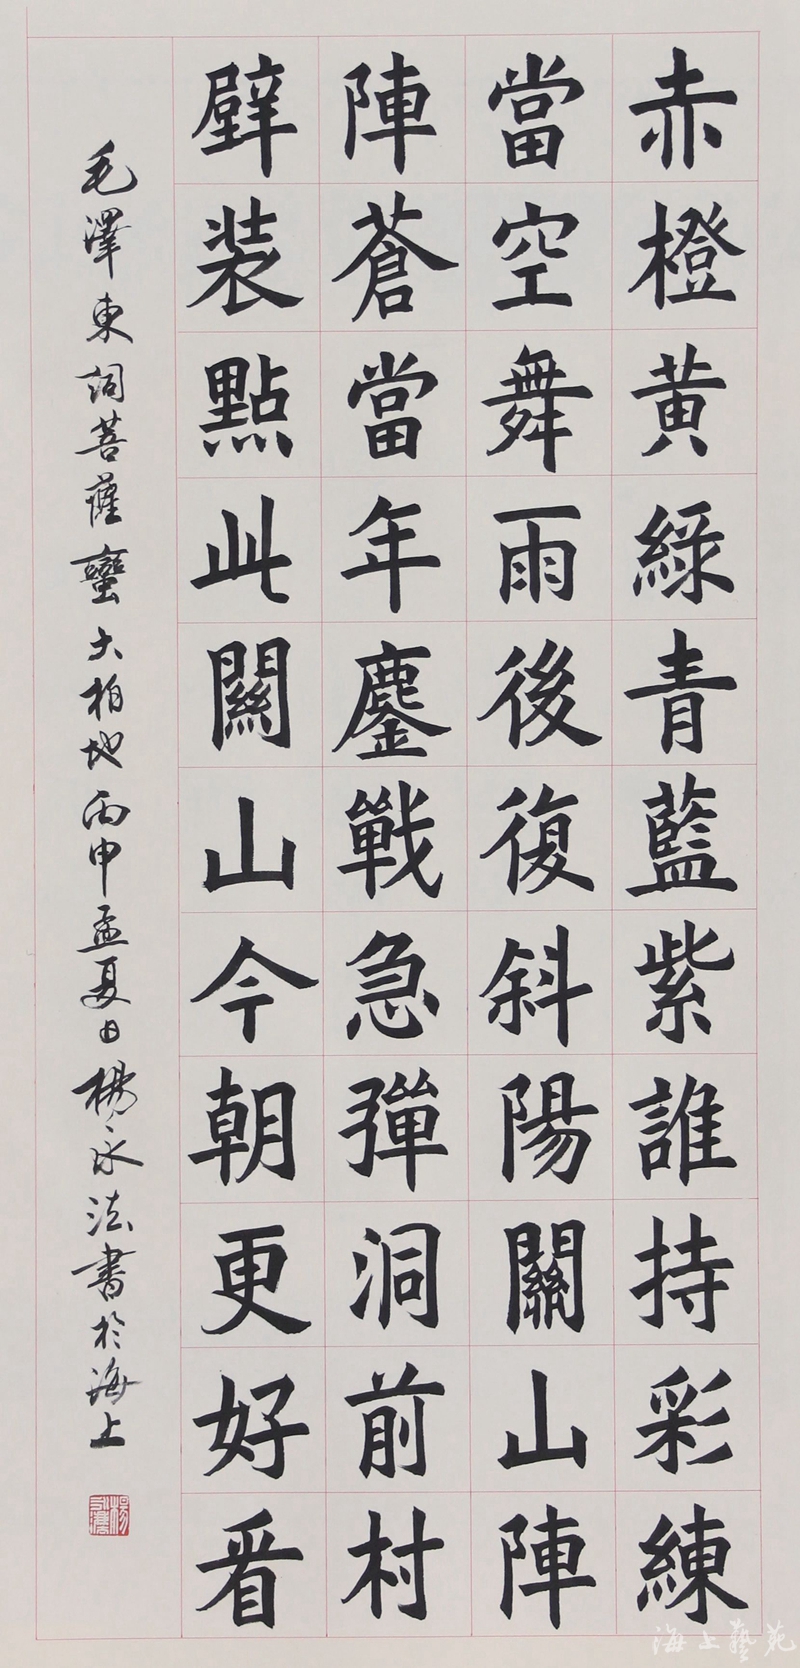 赤橙黃綠青藍紫誰持彩練
當空舞雨後復斜陽關山陣
陣蒼當年鏖戰急彈洞前村
壁装點此關山今朝更好看
毛澤東詞菩薩蠻大柏地丙申孟夏日楊永法書於海上
海上藝苑